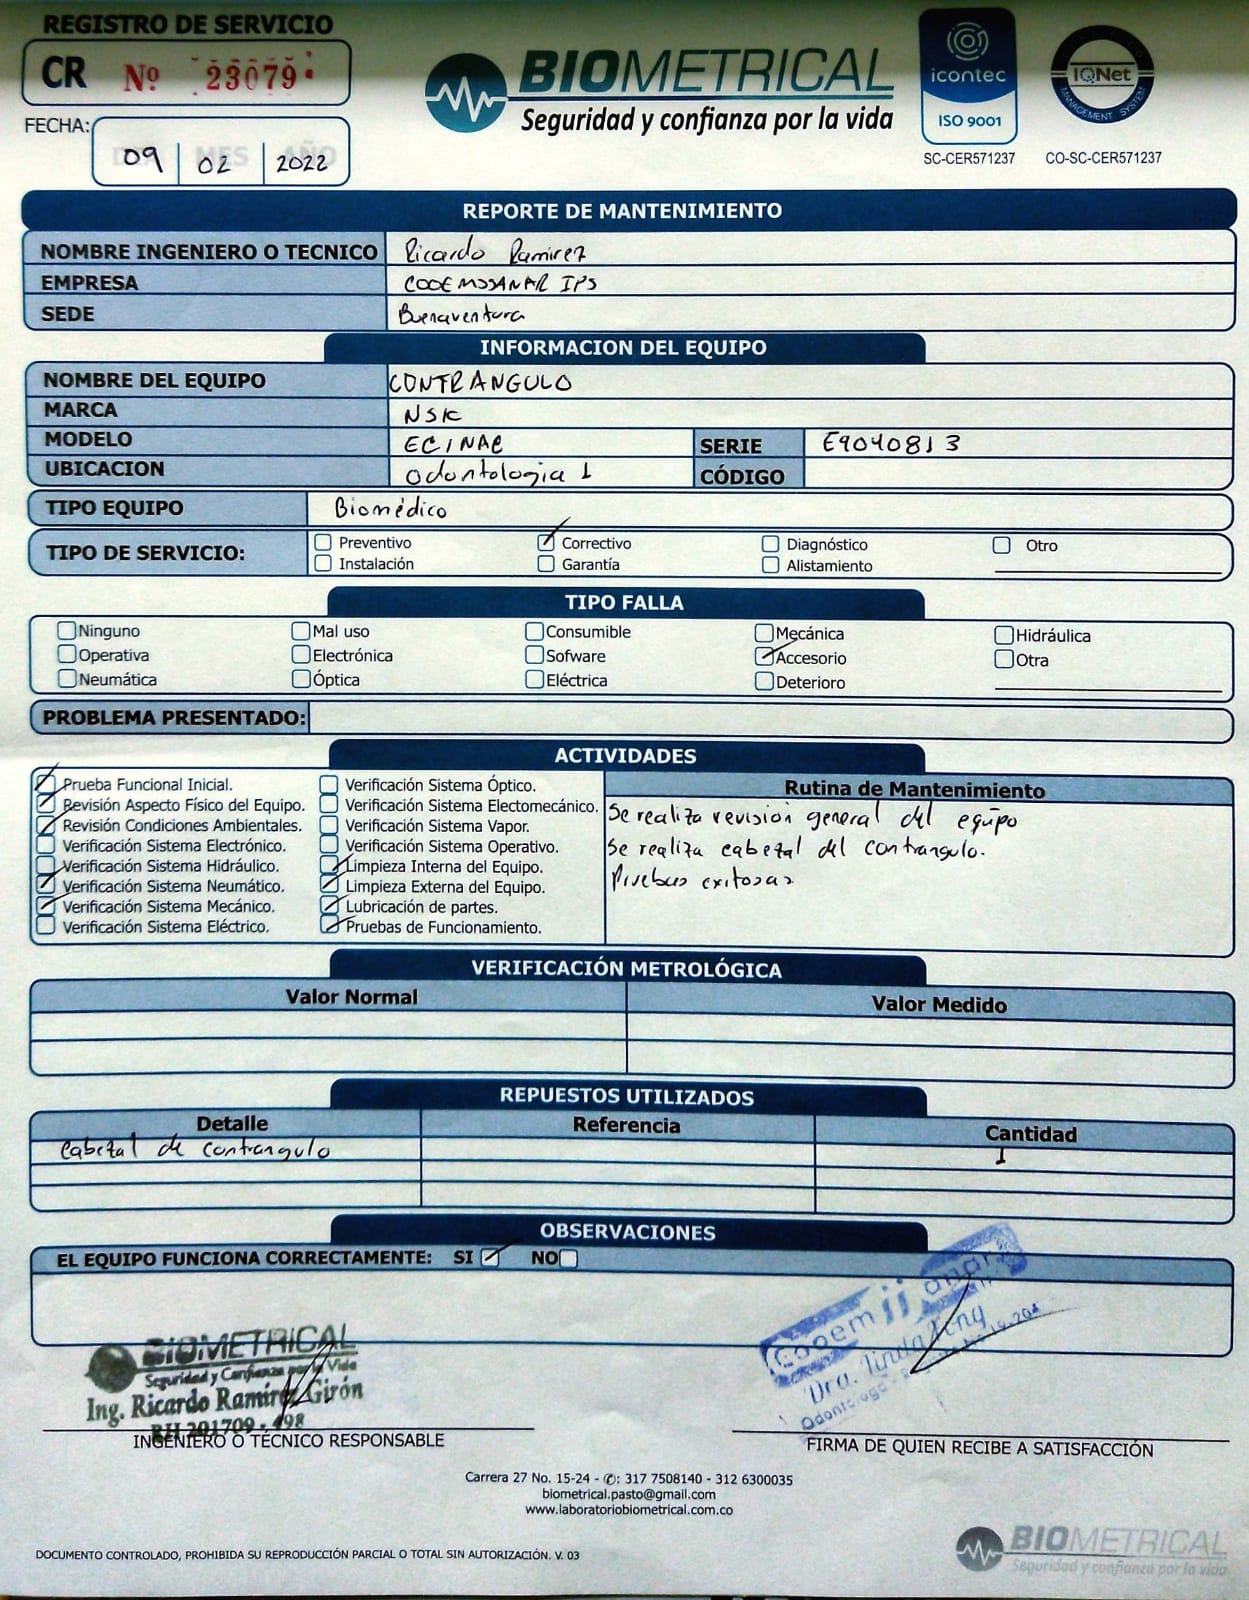 REGISTRO DE SERVICIO
CR Nº 23079
FECHA: DIA MES AÑO
09 02 2022
BIOMETRICAL
Seguridad y confianza por la vida
icontec
ISO 9001
SC-CER571237
IQNet
MANAGEMENT SYSTEM
CO-SC-CER571237
REPORTE DE MANTENIMIENTO
NOMBRE INGENIERO O TECNICO Ricardo Ramirez
EMPRESA COOEMSSANAR IPS
SEDE Buenaventura
INFORMACION DEL EQUIPO
NOMBRE DEL EQUIPO CONTRANGULO
MARCA NSK
MODELO ECINAC SERIE E9040813
UBICACION Odontologia 1 CÓDIGO
TIPO EQUIPO Biomédico
TIPO DE SERVICIO:
Preventivo Correctivo Diagnóstico Otro
Instalación Garantía Alistamiento
TIPO FALLA
Ninguno Mal uso Consumible Mecánica Hidráulica
Operativa Electrónica Sofware Accesorio Otra
Neumática Óptica Eléctrica Deterioro
PROBLEMA PRESENTADO:
ACTIVIDADES
Prueba Funcional Inicial.
Revisión Aspecto Físico del Equipo.
Revisión Condiciones Ambientales.
Verificación Sistema Electrónico.
Verificación Sistema Hidráulico.
Verificación Sistema Neumático.
Verificación Sistema Mecánico.
Verificación Sistema Eléctrico.
Verificación Sistema Óptico.
Verificación Sistema Electomecánico.
Verificación Sistema Vapor.
Verificación Sistema Operativo.
Limpieza Interna del Equipo.
Limpieza Externa del Equipo.
Lubricación de partes.
Pruebas de Funcionamiento.
Rutina de Mantenimiento
Se realiza revisión general del equipo
Se realiza cabezal del contrangulo.
Pruebas exitosas
VERIFICACIÓN METROLÓGICA
Valor Normal Valor Medido
REPUESTOS UTILIZADOS
Detalle Referencia Cantidad
Cabezal de contrangulo 1
OBSERVACIONES
EL EQUIPO FUNCIONA CORRECTAMENTE: SI NO
BIOMETRICAL
Seguridad y Confianza por la Vida
Ing. Ricardo Ramírez Girón
RH 201709 - 498
INGENIERO O TÉCNICO RESPONSABLE
Cooem anar
Dra.
FIRMA DE QUIEN RECIBE A SATISFACCIÓN
Carrera 27 No. 15-24 - ✆: 317 7508140 - 312 6300035
biometrical.pasto@gmail.com
www.laboratoriobiometrical.com.co
DOCUMENTO CONTROLADO, PROHIBIDA SU REPRODUCCIÓN PARCIAL O TOTAL SIN AUTORIZACIÓN. V. 03
BIOMETRICAL
Seguridad y confianza por la vida